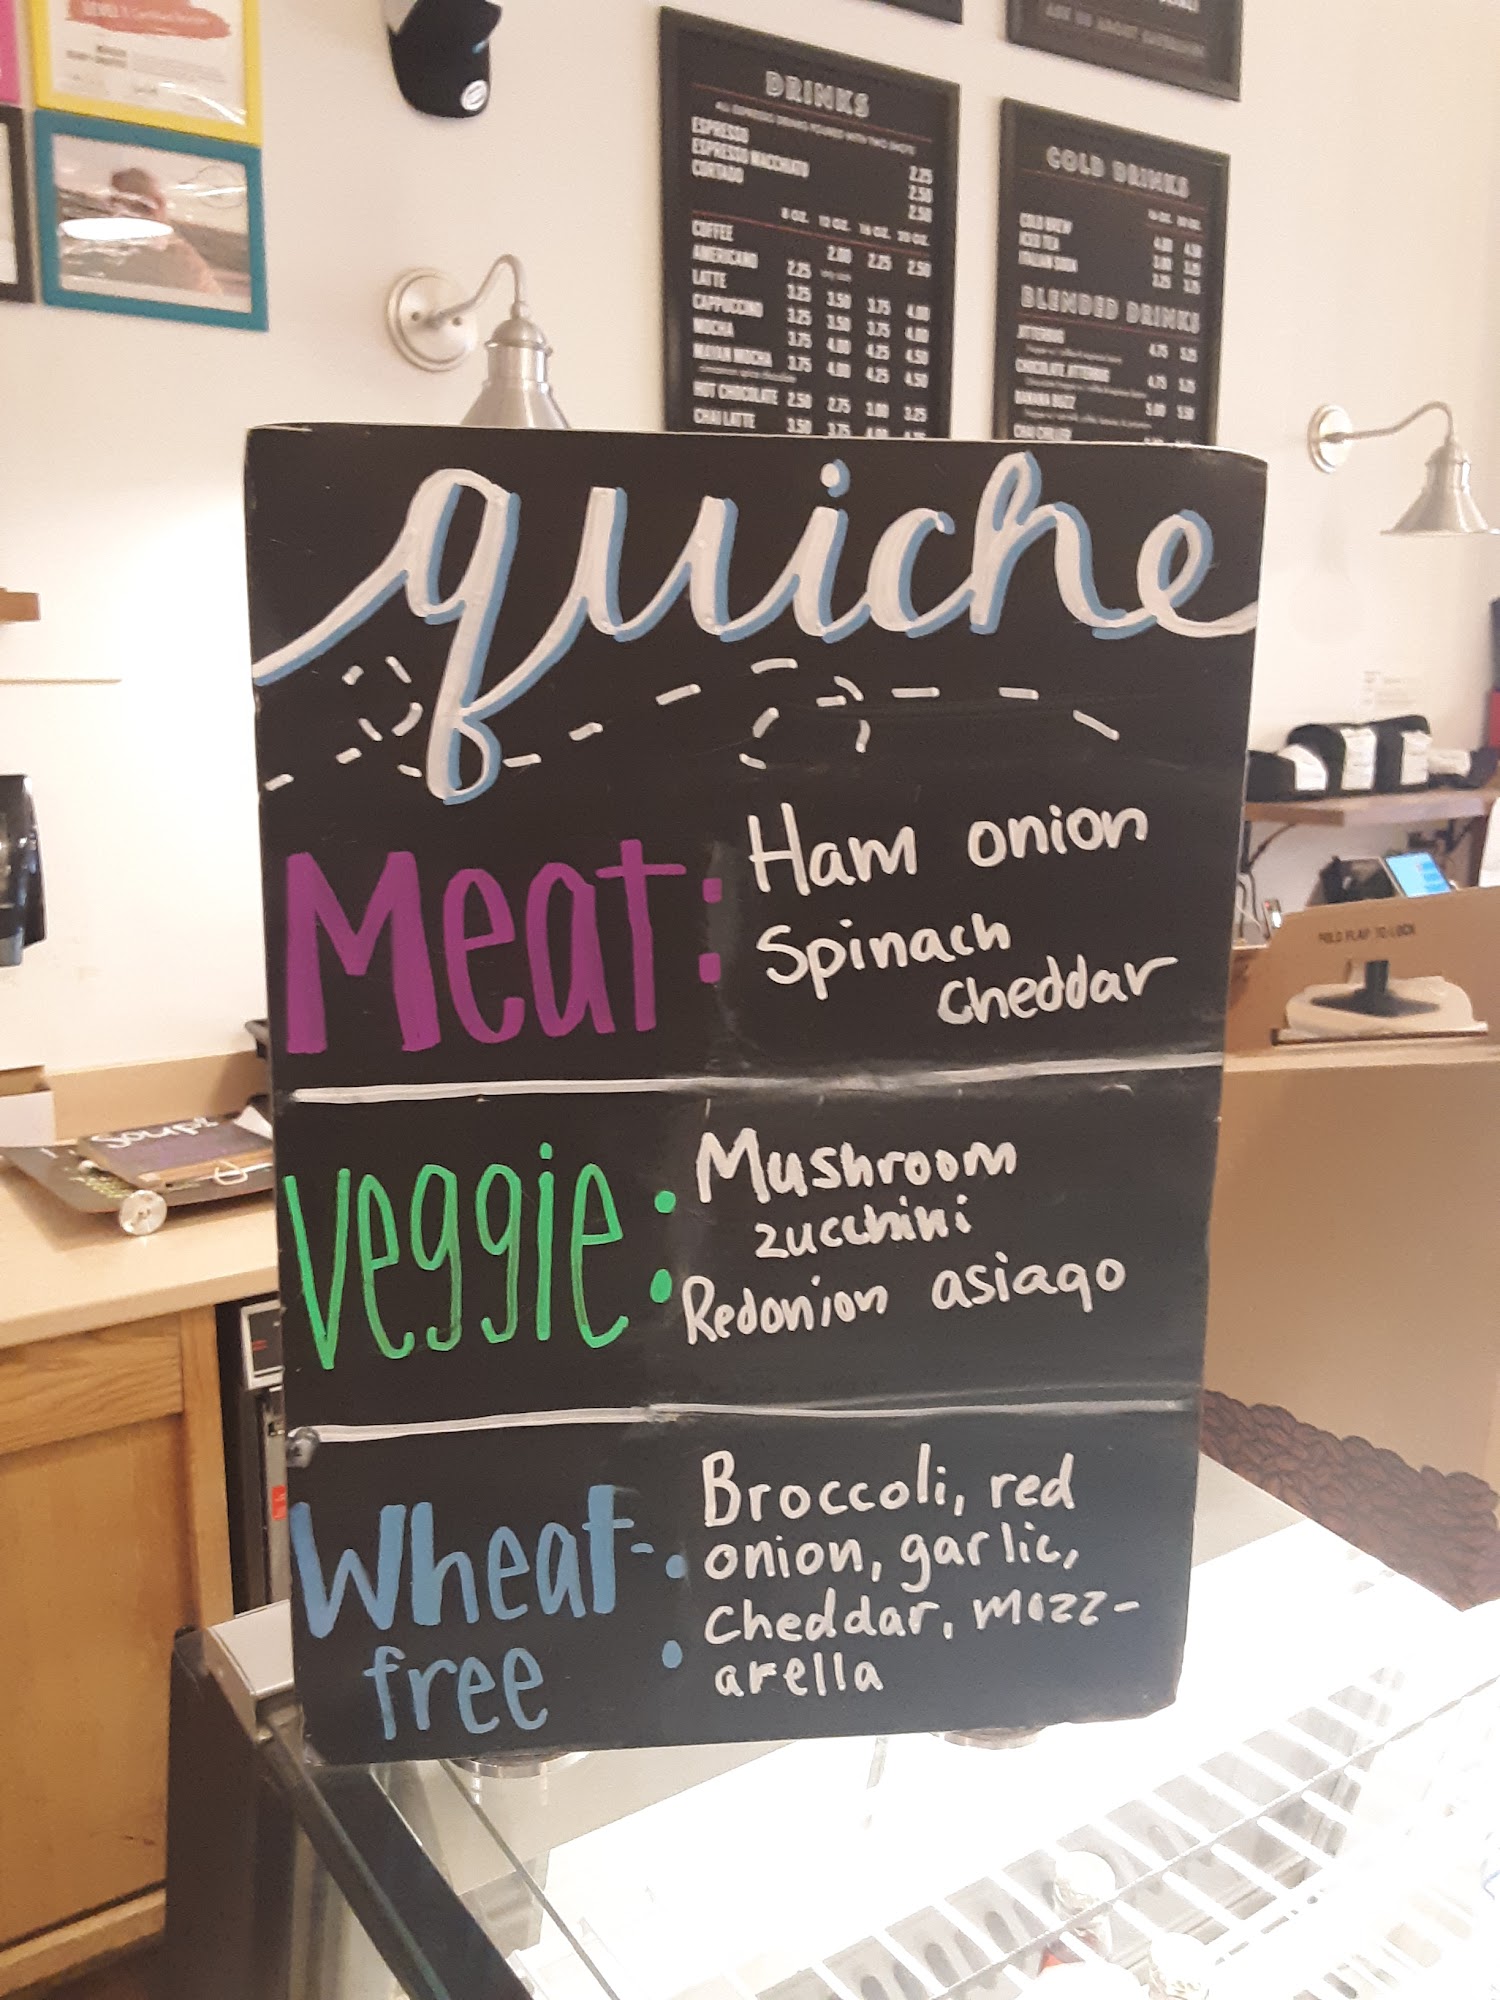 DRINKS
ALL ESPRESSO DRINKS POURED WITH TWO SHOTS
ESPRESSO 2.25
ESPRESSO MACCHIATO 2.50
CORTADO 2.50
8 OZ. 12 OZ. 16 OZ. 20 OZ.
COFFEE 2.00 2.25 2.50
AMERICANO 2.25
LATTE 3.25 3.50 3.75 4.00
CAPPUCCINO 3.25 3.50 3.75 4.00
MOCHA 3.75 4.00 4.25 4.50
MAYAN MOCHA 3.75 4.00 4.25 4.50
HOT CHOCOLATE 2.50 2.75 3.00 3.25
CHAI LATTE 3.50 3.75
COLD DRINKS
COLD BREW 4.00 4.50
ICED TEA 3.00 3.25
ITALIAN SODA 3.25 3.75
BLENDED DRINKS
4.75 5.25
CHOCOLATE 4.75 5.25
BANANA BUZZ 5.00 5.50
quiche
Meat: Ham onion
Spinach
cheddar
Veggie: Mushroom
zucchini
Redonion asiago
Wheat-free: Broccoli, red
onion, garlic,
cheddar, mozz-
arella
FOLD FLAP TO LOCK
Soups